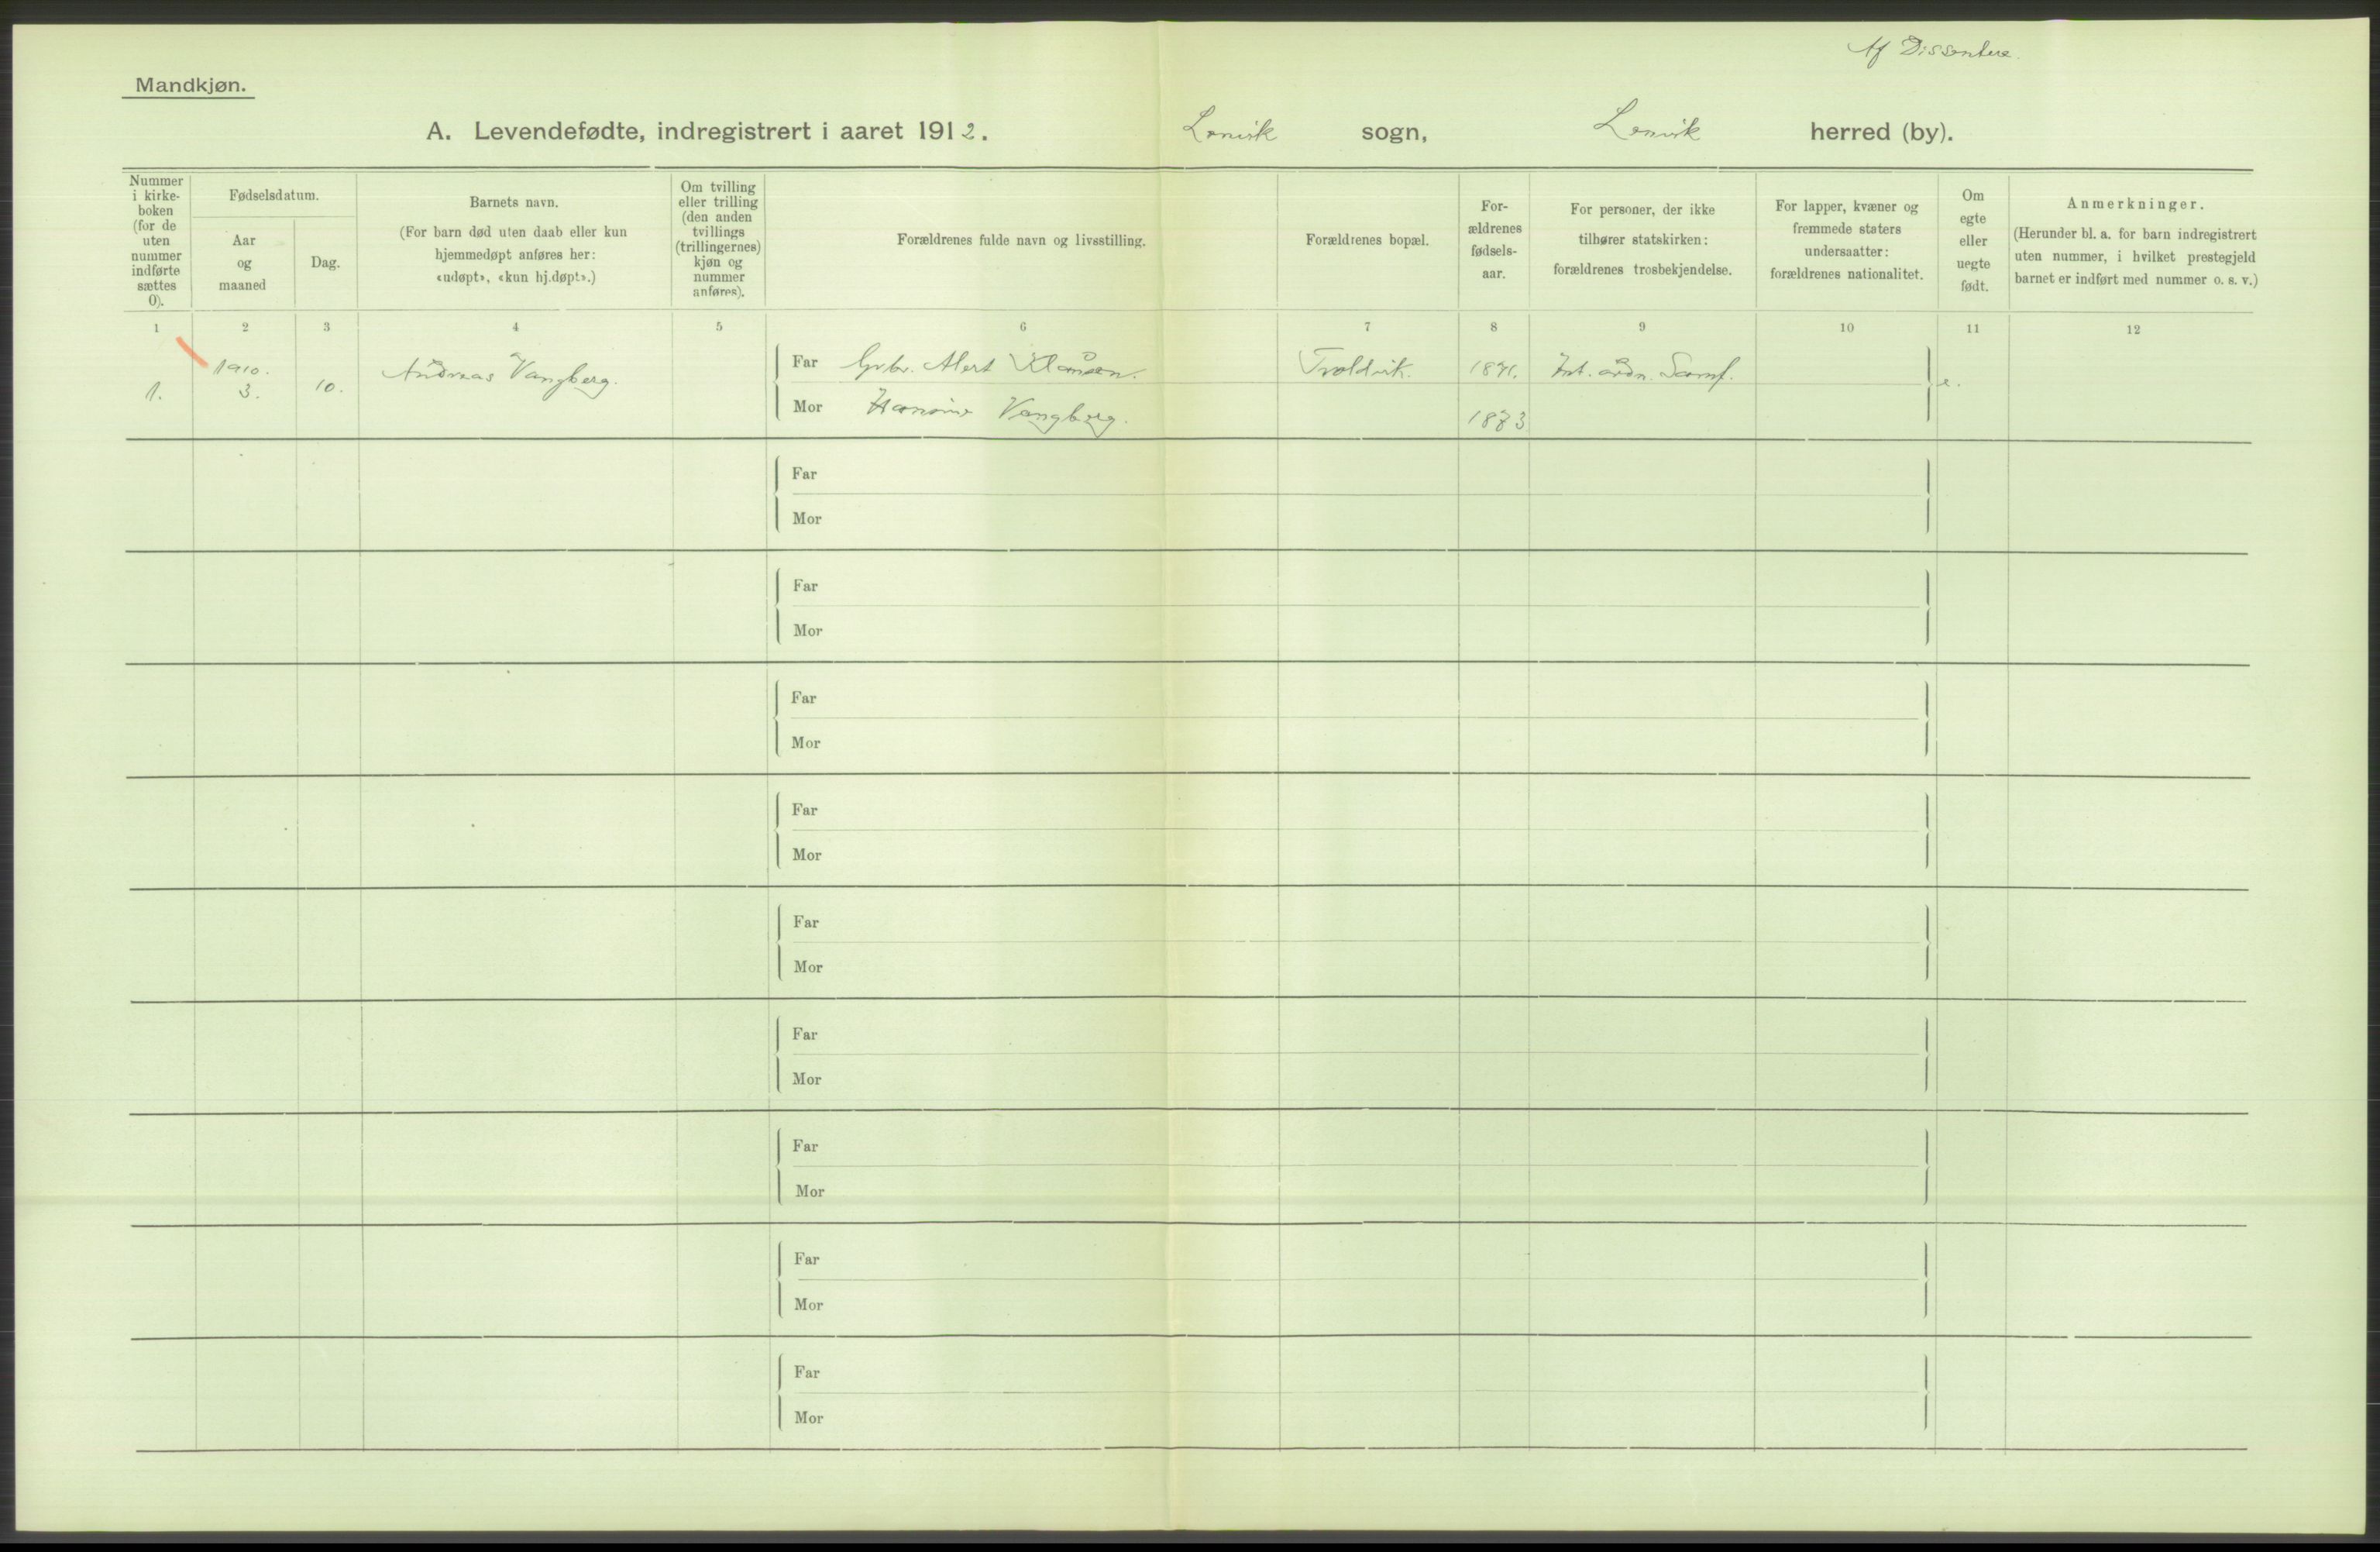 Af Dissentere.
Mandkjøn.
A. Levendefødte, indregistrert i aaret 1912. Lenvik sogn, Lenvik herred (by).
Nummer
i kirke-
boken
(for de
uten
nummer
indførte
sættes
0).
Fødselsdatum.
Aar
og
maaned
Dag.
Barnets navn.
(For barn død uten daab eller kun
hjemmedøpt anføres her:
«udøpt», «kun hj.døpt».)
Om tvilling
eller trilling
(den anden
tvillings
(trillingernes)
kjøn og
nummer
anføres).
Forældrenes fulde navn og livsstilling.
Forældrenes bopæl.
For-
ældrenes
fødsels-
aar.
For personer, der ikke
tilhører statskirken:
forældrenes trosbekjendelse.
For lapper, kvæner og
fremmede staters
undersaatter:
forældrenes nationalitet.
Om
egte
eller
uegte
født.
Anmerkninger.
(Herunder bl. a. for barn indregistrert
uten nummer, i hvilket prestegjeld
barnet er indført med nummer o. s. v.)
1 2 3 4 5 6 7 8 9 10 11 12
1.
1910.
3.
10.
Andreas Vangberg.
Far Grbr. Alert Klausen.
Mor Hansine Vangberg.
Troldvik.
1871.
1873
Int. ordn. Samf.
e.
Far
Mor
Far
Mor
Far
Mor
Far
Mor
Far
Mor
Far
Mor
Far
Mor
Far
Mor
Far
Mor